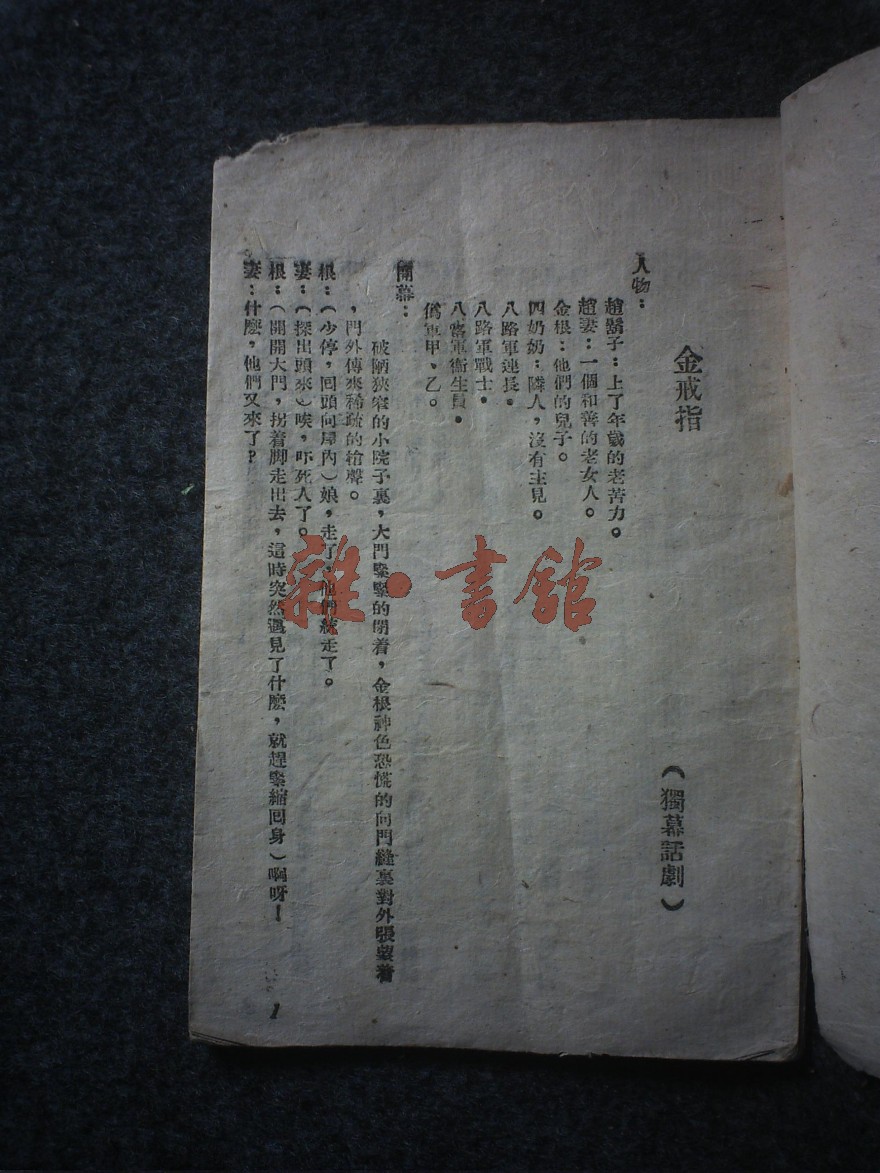 金戒指
（獨幕話劇）
人物：
趙鬍子：上了年歲的老苦力。
趙妻：一個和善的老女人。
金根：他們的兒子。
四奶奶：隣人，沒有主見。
八路軍連長。
八路軍戰士。
八路軍衛生員。
僞軍甲，乙。
開幕：
破陋狹窄的小院子裏，大門緊緊的閉着，金根神色恐慌的向門縫裏對外張望着
，門外傳來稀疏的槍聲。
根：（少停，回頭向屋內）娘，走了，他們統走了。
妻：（探出頭來）唉，吓死人了。
根：（開開大門，拐着脚走出去，這時突然遇見了什麽，就趕緊縮回身）啊呀！
妻：什麽，他們又來了？
1
雜·書舘